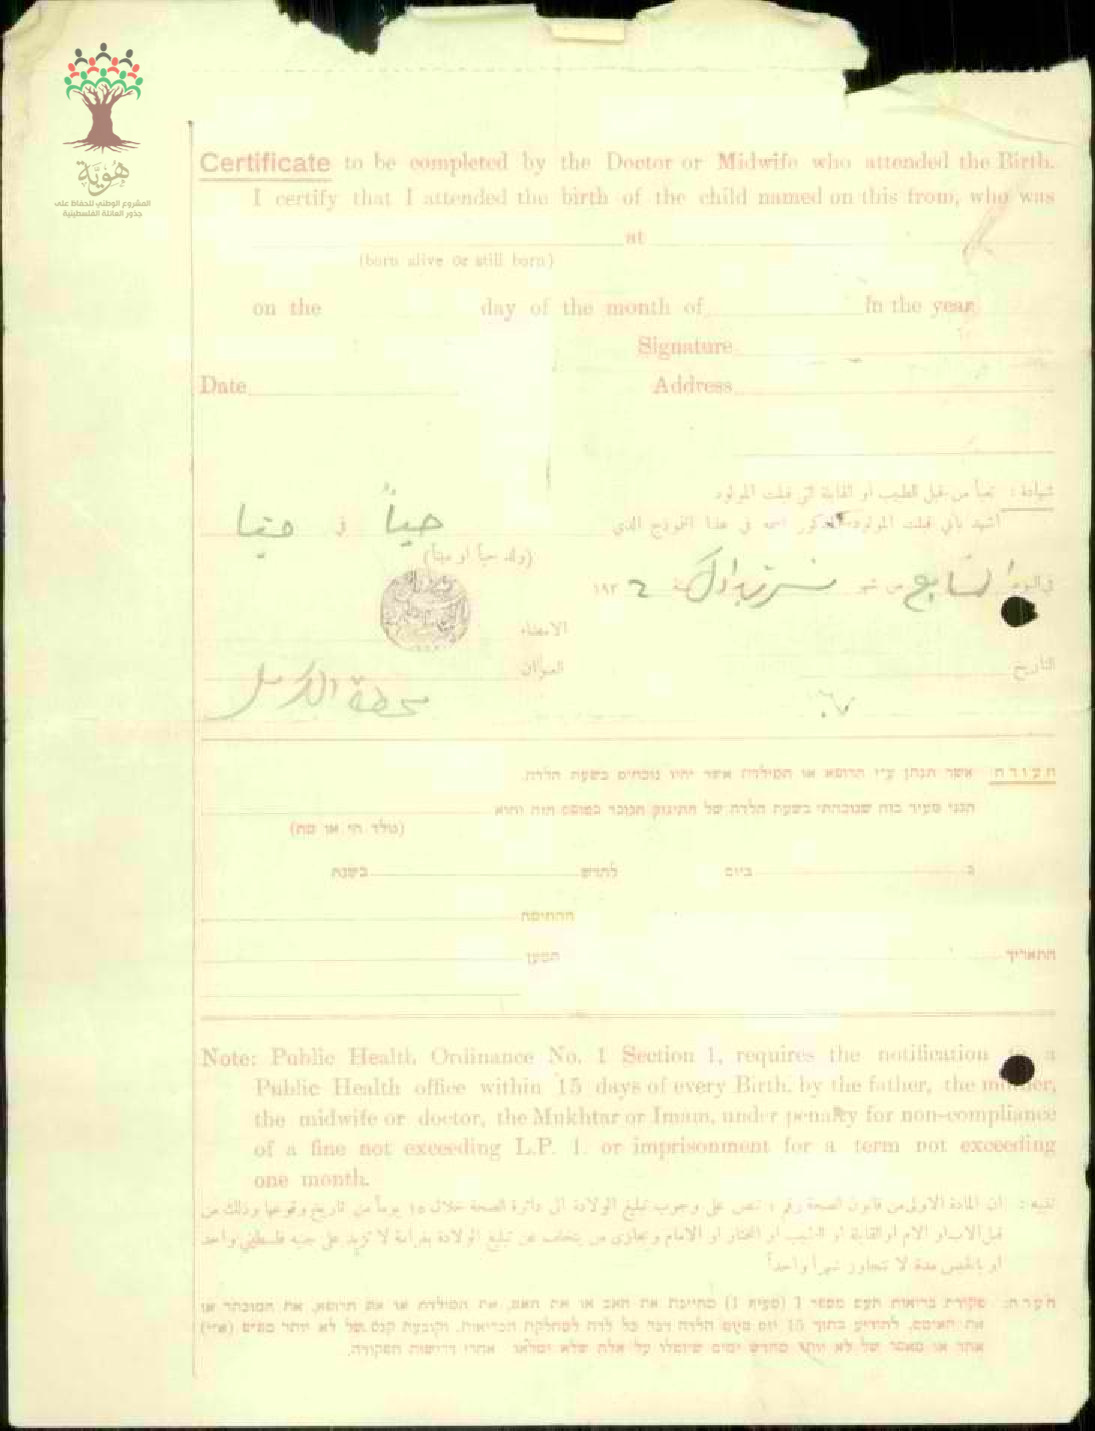 هُوِيَّة
المشروع الوطني للحفاظ على
جذور العائلة الفلسطينية
Certificate to be completed by the Doctor or Midwife who attended the Birth.
I certify that I attended the birth of the child named on this from, who was
at
(born alive or still born)
on the day of the month of In the year
Signature
Date Address
شهادة : تعبأ من قبل الطبيب او القابلة التي قبلت المولود
اشهد بأني قبلت المولود المذكور اسمه في هذا النموذج الذي حياً في حيفا
(ولد حياً او ميتاً)
في اليوم السابع من شهر تشرين اول سنة ١٩٣٢
الامضاء
التاريخ العنوان
محطة الكرمل
תעודה אשר תנתן ע״י הרופא או המילדת אשר יהיו נוכחים בשעת הלדה.
הנני מעיד בזה שנוכחתי בשעת הלדה של התינוק הנזכר בטופס הזה והוא
(נולד חי או מת)
ב ביום לחדש בשנת
החתימה
התאריך המען
Note: Public Health Ordinance No. 1 Section 1, requires the notification to a
Public Health office within 15 days of every Birth. by the father, the mother,
the midwife or doctor, the Mukhtar or Imam, under penalty for non-compliance
of a fine not exceeding L.P. 1. or imprisonment for a term not exceeding
one month.
تنبيه : ان المادة الاولى من قانون الصحة رقم ١ تنص على وجوب تبليغ الولادة الى دائرة الصحة خلال ١٥ يوماً من تاريخ وقوعها وذلك من
قبل الاب او الام او القابلة او الطبيب او المختار او الامام ويجازى من يتخلف عن تبليغ الولادة بغرامة لا تزيد على جنيه فلسطيني واحد
او بالحبس مدة لا تتجاوز شهراً واحداً
הערה: פקודת בריאות העם מספר 1 (סעיף 1) מחייבת את האב או את האם, את המילדת או את הרופא, את המוכתר או
את האימם, להודיע בתוך 15 יום מיום הלדה דבר כל לדה למחלקת הבריאות, וקובעת קנס של לא יותר מפונט (א״י)
אחד או מאסר של לא יותר מחדש ימים שיוטלו על אלה שלא ימלאו אחרי דרישות הפקודה.